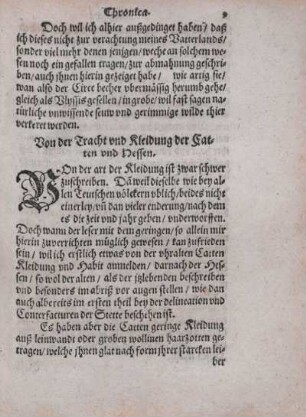 Chronica. 9
Doch wil ich alhier außgedinget haben / daß
ich dieses nicht zur verachtung meines Vatterlands /
sonder viel mehr denen jenigen / weche an solchem we-
sen noch ein gefallen tragen / zur abmahnung geschri-
ben / auch jhnen hierin gezeiget habe / wie artig sie /
wan also der Circe becher vbermässig herumb gehe /
gleich als Vlyssis gesellen / in grobe / wil fast sagen na-
türliche vnwissende seuw vnd gerimmige wilde thier
verkeret werden.
Von der Tracht vnd Kleidung der Cat-
ten vnd Hessen.
VOn der art der Kleidung ist zwar schwer
zuschreiben. Da weil dieselbe wie bey al-
len Teutschen völckern vblich / beides nicht
einerley / vñ dan vieler enderung / nach dem
es die zeit vnd jahr geben / vnderworffen.
Doch wann der leser mit dem geringen / so allein mir
hierin zuverrichten müglich gewesen / kan zufrieden
sein / wil ich erstlich etwas von der vhralten Catten
Kleidung vnd Habit anmelden / darnach der Hes-
sen / so wol der alten / als der jtzlebenden beschreiben
vnd besonders im abriß vor augen stellen / wie dan
auch albereits im ersten theil bey der delineation vnd
Conterfacturen der Stette beschehen ist.
Es haben aber die Catten geringe Kleidung
auß leinwandt oder groben wollinen haarzotten ge-
tragen / welche jhnen glat nach form jhrer starcken lei-
ber